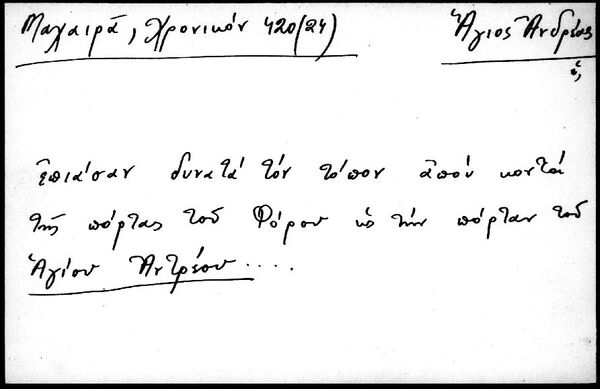 Μαχαιρᾶ, Χρονικόν 420(24)
Ἅγιος Ἀνδρέας
ὁ,
ἐπιάσαν δυνατά τόν τόπον ἀπού κοντά
τῆς πόρτας τοῦ Φόρου ὡς τήν πόρταν τοῦ
Ἁγίου Ἀντρέου....